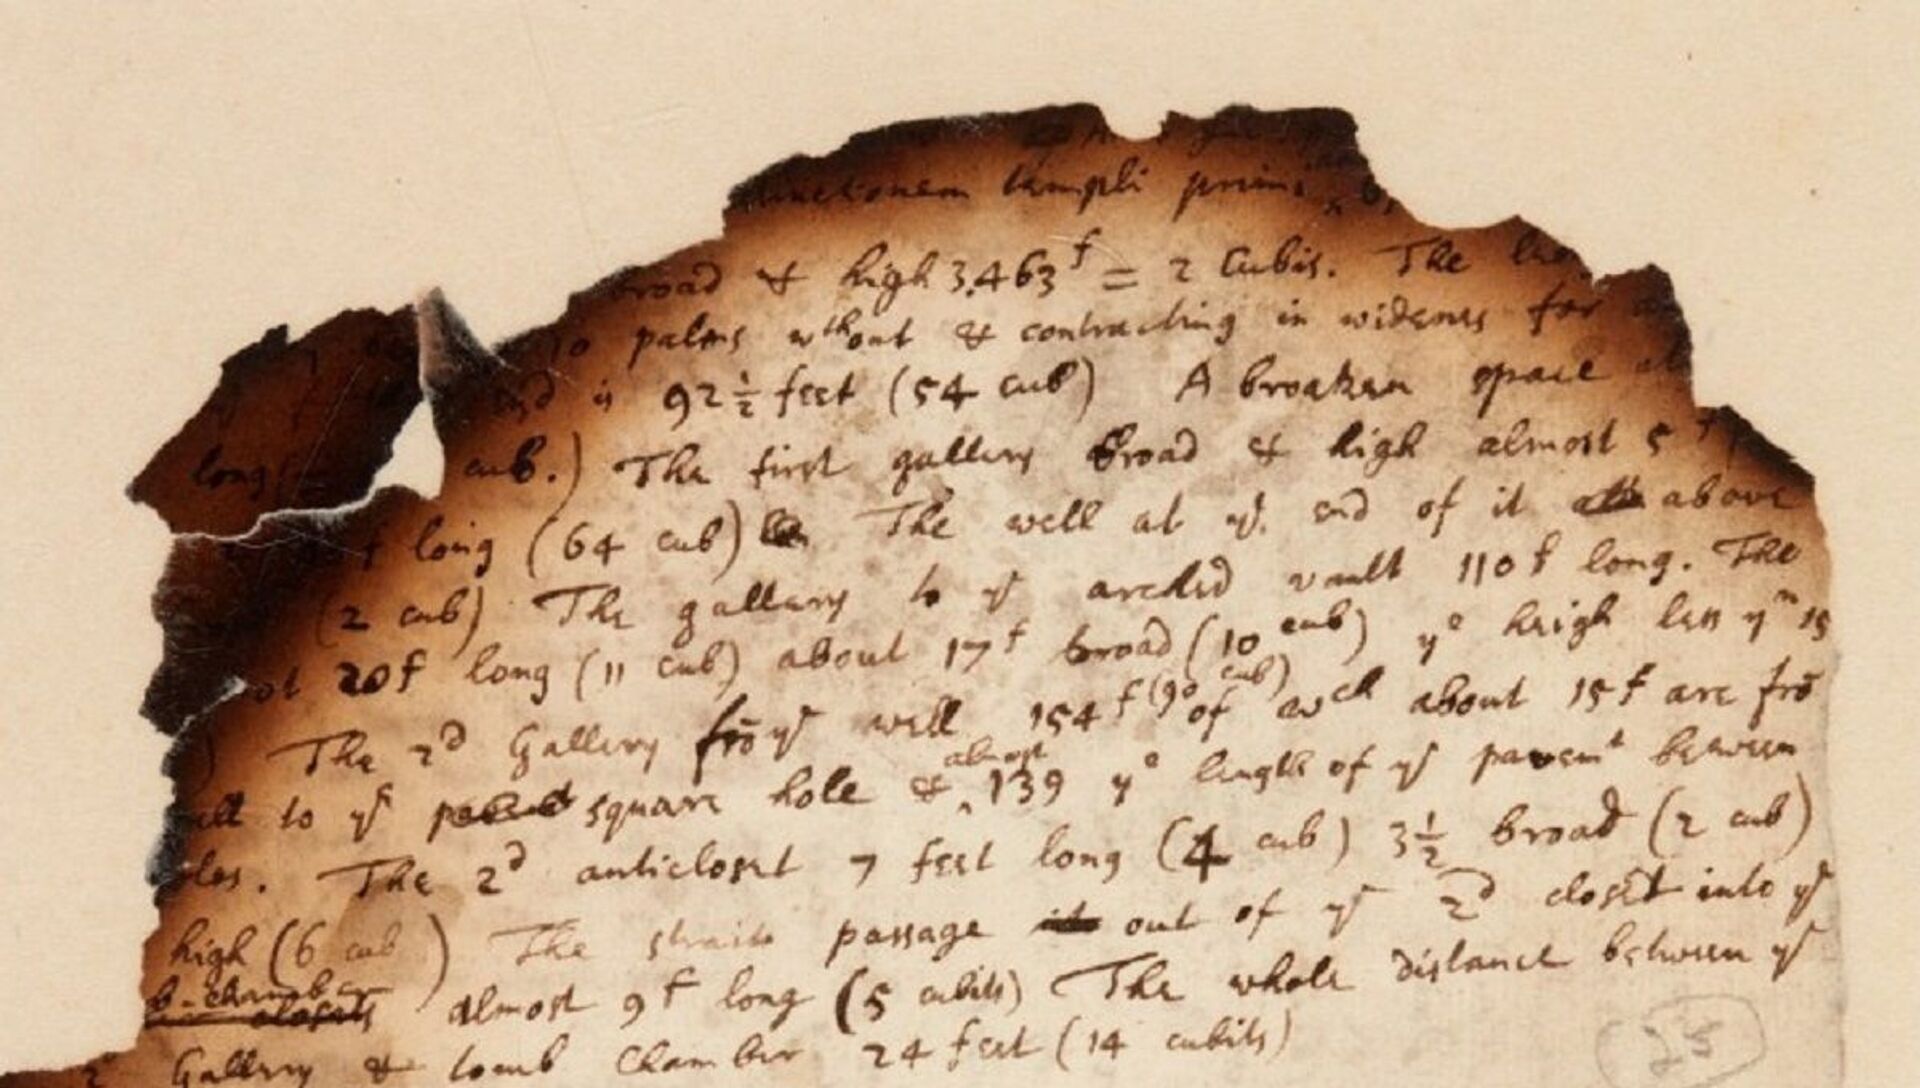 templi primi
broad & high 3.463f = 2 Cubis. The
10 palms wthout & contracting in wideness for
end is 92 1/2 feet (54 cub) A broaken space
long = cub.) The first gallery broad & high almost 5 f
f long (64 cub) The well at ye. end of it above
(2 cub) The gallery to ye arched vault 110 f long. The
20f long (11 cub) about 17f broad (10 cub) ye heigh less yn 15
) The 2d Gallery frō ye well 154f (90 cub) of wch about 15f are frō
to ye square hole & almost 139 ye length of ye pavemt between
The 2d anticloset 7 feet long (4 cub) 3 1/2 broad (2 cub)
high (6 cub) The strait passage out of ye 2d closet into ye
b-chamber closets almost 9f long (5 cubits) The whole distance between ye
2 Gallery & tomb Chamber 24 feet (14 cubits)
25